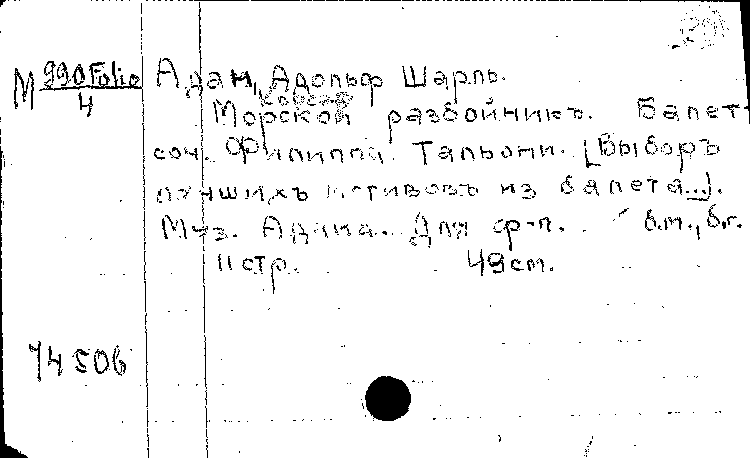 М 990Folio/4
Адам, Адольф Шарль.
Морской разбойникъ. Балет
соч. Филиппа Тальони. [Выборъ
лучшихъ мотивовъ из балета...].
Муз. Адама. Для ф-п. б.м., б.г.
11 стр. 49 cm.
74506